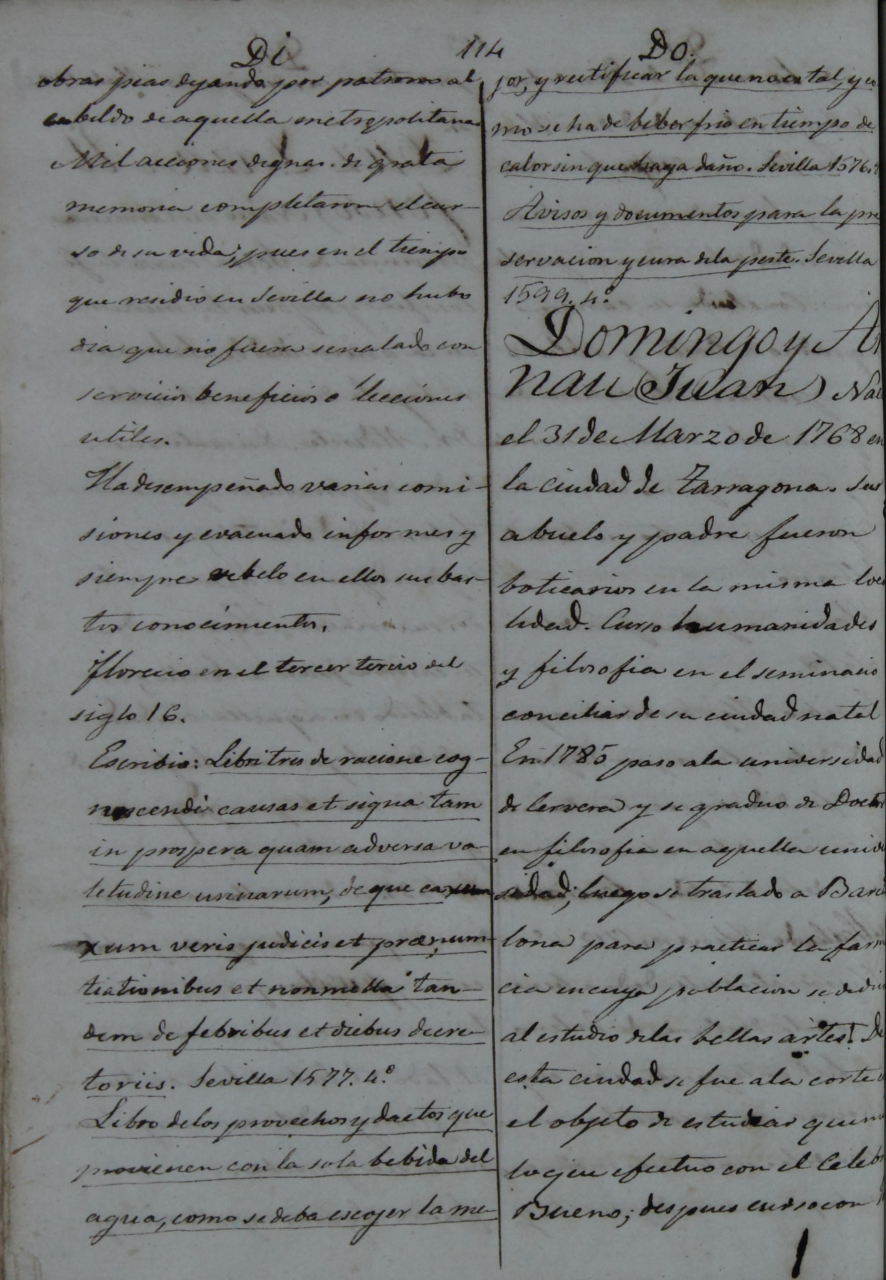 Di
114
Do.
obras pias dejando por patronos al
cabildo de aquella metropolitana
Mil acciones dignas de grata
memoria completaron el cur-
so de su vida; pues en el tiempo
que residio en Sevilla no hubo
dia que no fuera señalado con
servicios beneficios o lecciones
utiles.
Ha desempeñado varias comi-
siones y evacuado informes y
siempre rebelo en ellos sus bas-
tos conocimientos.
Florecio en el tercer tercio del
siglo 16.
Escribio: Libri tres de racione cog-
noscendi causas et signa tam
in prospera quam adversa va-
letudine urinarum, de que
xum veris judiciis et prænum-
tiationibus et nonnulla tan-
dem de febribus et diebus decre-
toriis. Sevilla 1577. 4.º
Libro de los provechos y dactos que
provienen con la sola bebida del
agua, como se deba escojer la me-
jor, y rectificar la que no es tal, y co
mo se ha de beber frio en tiempo de
calor sin que haga daño. Sevilla 1576.
Avisos y documentos para la pre
servacion y cura de la peste. Sevilla
1599. 4.º
Domingo y Ar
nau (Juan) Nac
el 31 de Marzo de 1768 en
la ciudad de Tarragona. sus
abuelo y padre fueron
boticarios en la misma loca
lidad. Curso humanidades
y filosofia en el seminario
conciliar de su ciudad natal
En 1785 paso a la universidad
de Cervera y se graduo de Doctor
en filosofia en aquella univer
sidad; luego se traslado a Barce
lona para practicar la farma
cia en cuya poblacion se dedico
al estudio de las bellas artes. De
esta ciudad se fue a la corte
el objeto de estudiar quimi
lo que efectuo con el Celeb
Bueno; despues curso con